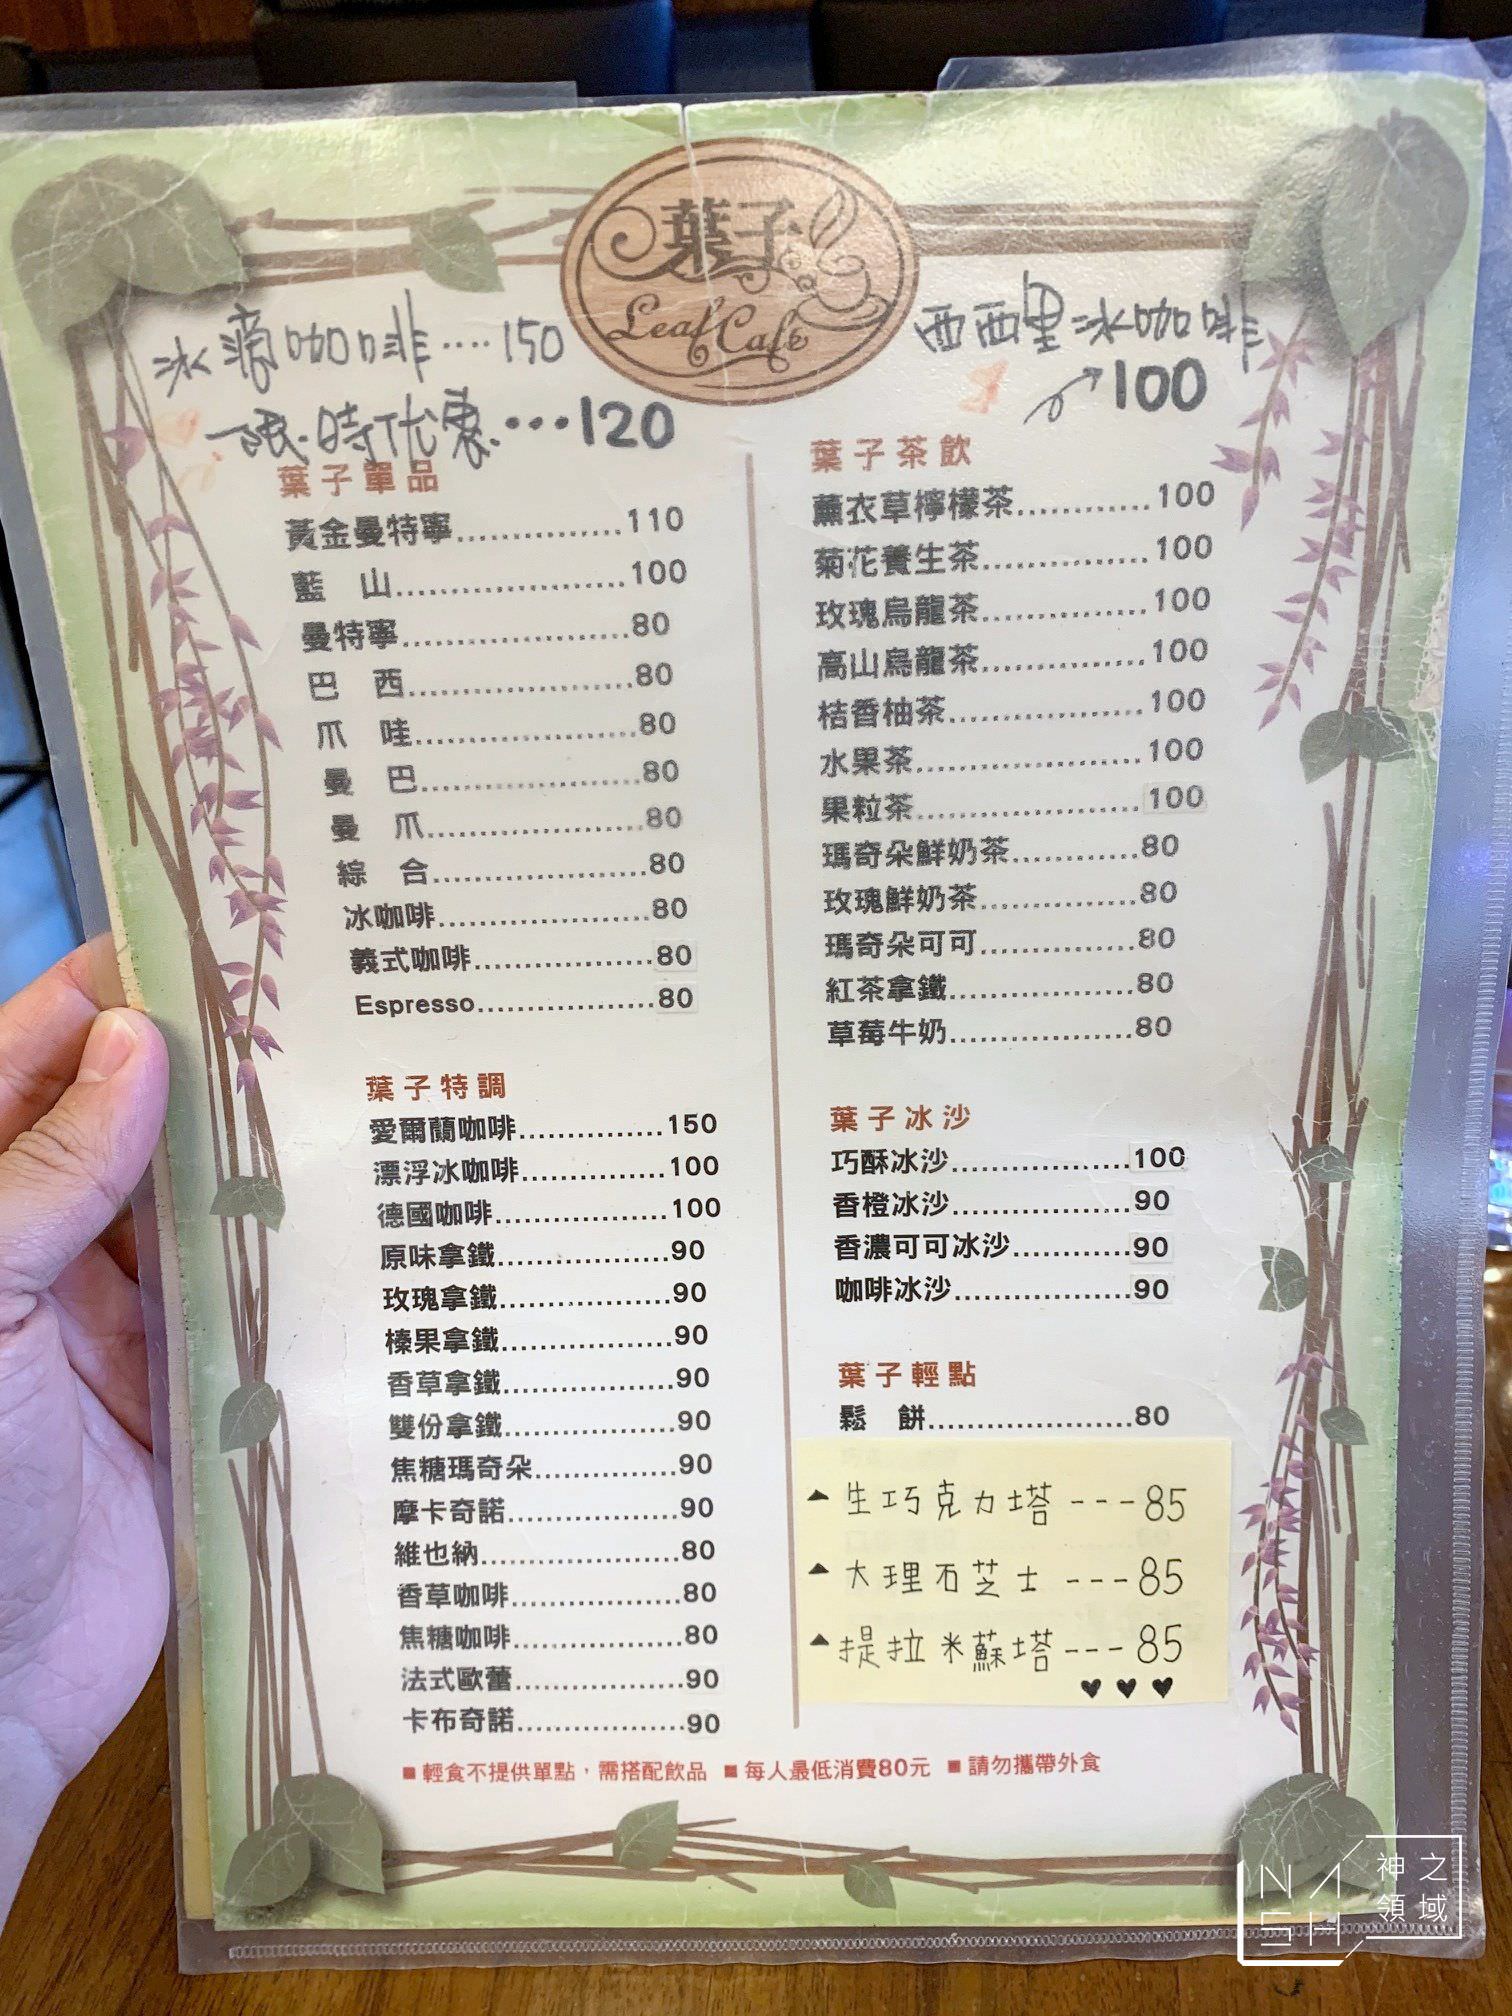 葉子
Leaf Cafe
冰滴咖啡....150
限時优惠...120
西西里冰咖啡
100
葉子單品
黃金曼特寧................110
藍　山......................100
曼特寧......................80
巴　西......................80
爪　哇......................80
曼　巴......................80
曼　爪......................80
綜　合......................80
冰咖啡......................80
義式咖啡..................80
Espresso..................80
葉子特調
愛爾蘭咖啡...............150
漂浮冰咖啡...............100
德國咖啡..................100
原味拿鐵..................90
玫瑰拿鐵..................90
榛果拿鐵..................90
香草拿鐵..................90
雙份拿鐵..................90
焦糖瑪奇朵...............90
摩卡奇諾..................90
維也納.....................80
香草咖啡..................80
焦糖咖啡..................80
法式歐蕾..................90
卡布奇諾..................90
葉子茶飲
薰衣草檸檬茶.............100
菊花養生茶................100
玫瑰烏龍茶................100
高山烏龍茶................100
桔香柚茶...................100
水果茶......................100
果粒茶......................100
瑪奇朵鮮奶茶............80
玫瑰鮮奶茶...............80
瑪奇朵可可...............80
紅茶拿鐵..................80
草莓牛奶..................80
葉子冰沙
巧酥冰沙..................100
香橙冰沙..................90
香濃可可冰沙............90
咖啡冰沙..................90
葉子輕點
鬆　餅.....................80
▲生巧克力塔---85
▲大理石芝士---85
▲提拉米蘇塔---85
♥♥♥
■輕食不提供單點，需搭配飲品 ■每人最低消費80元 ■請勿攜帶外食
NASH
神之領域